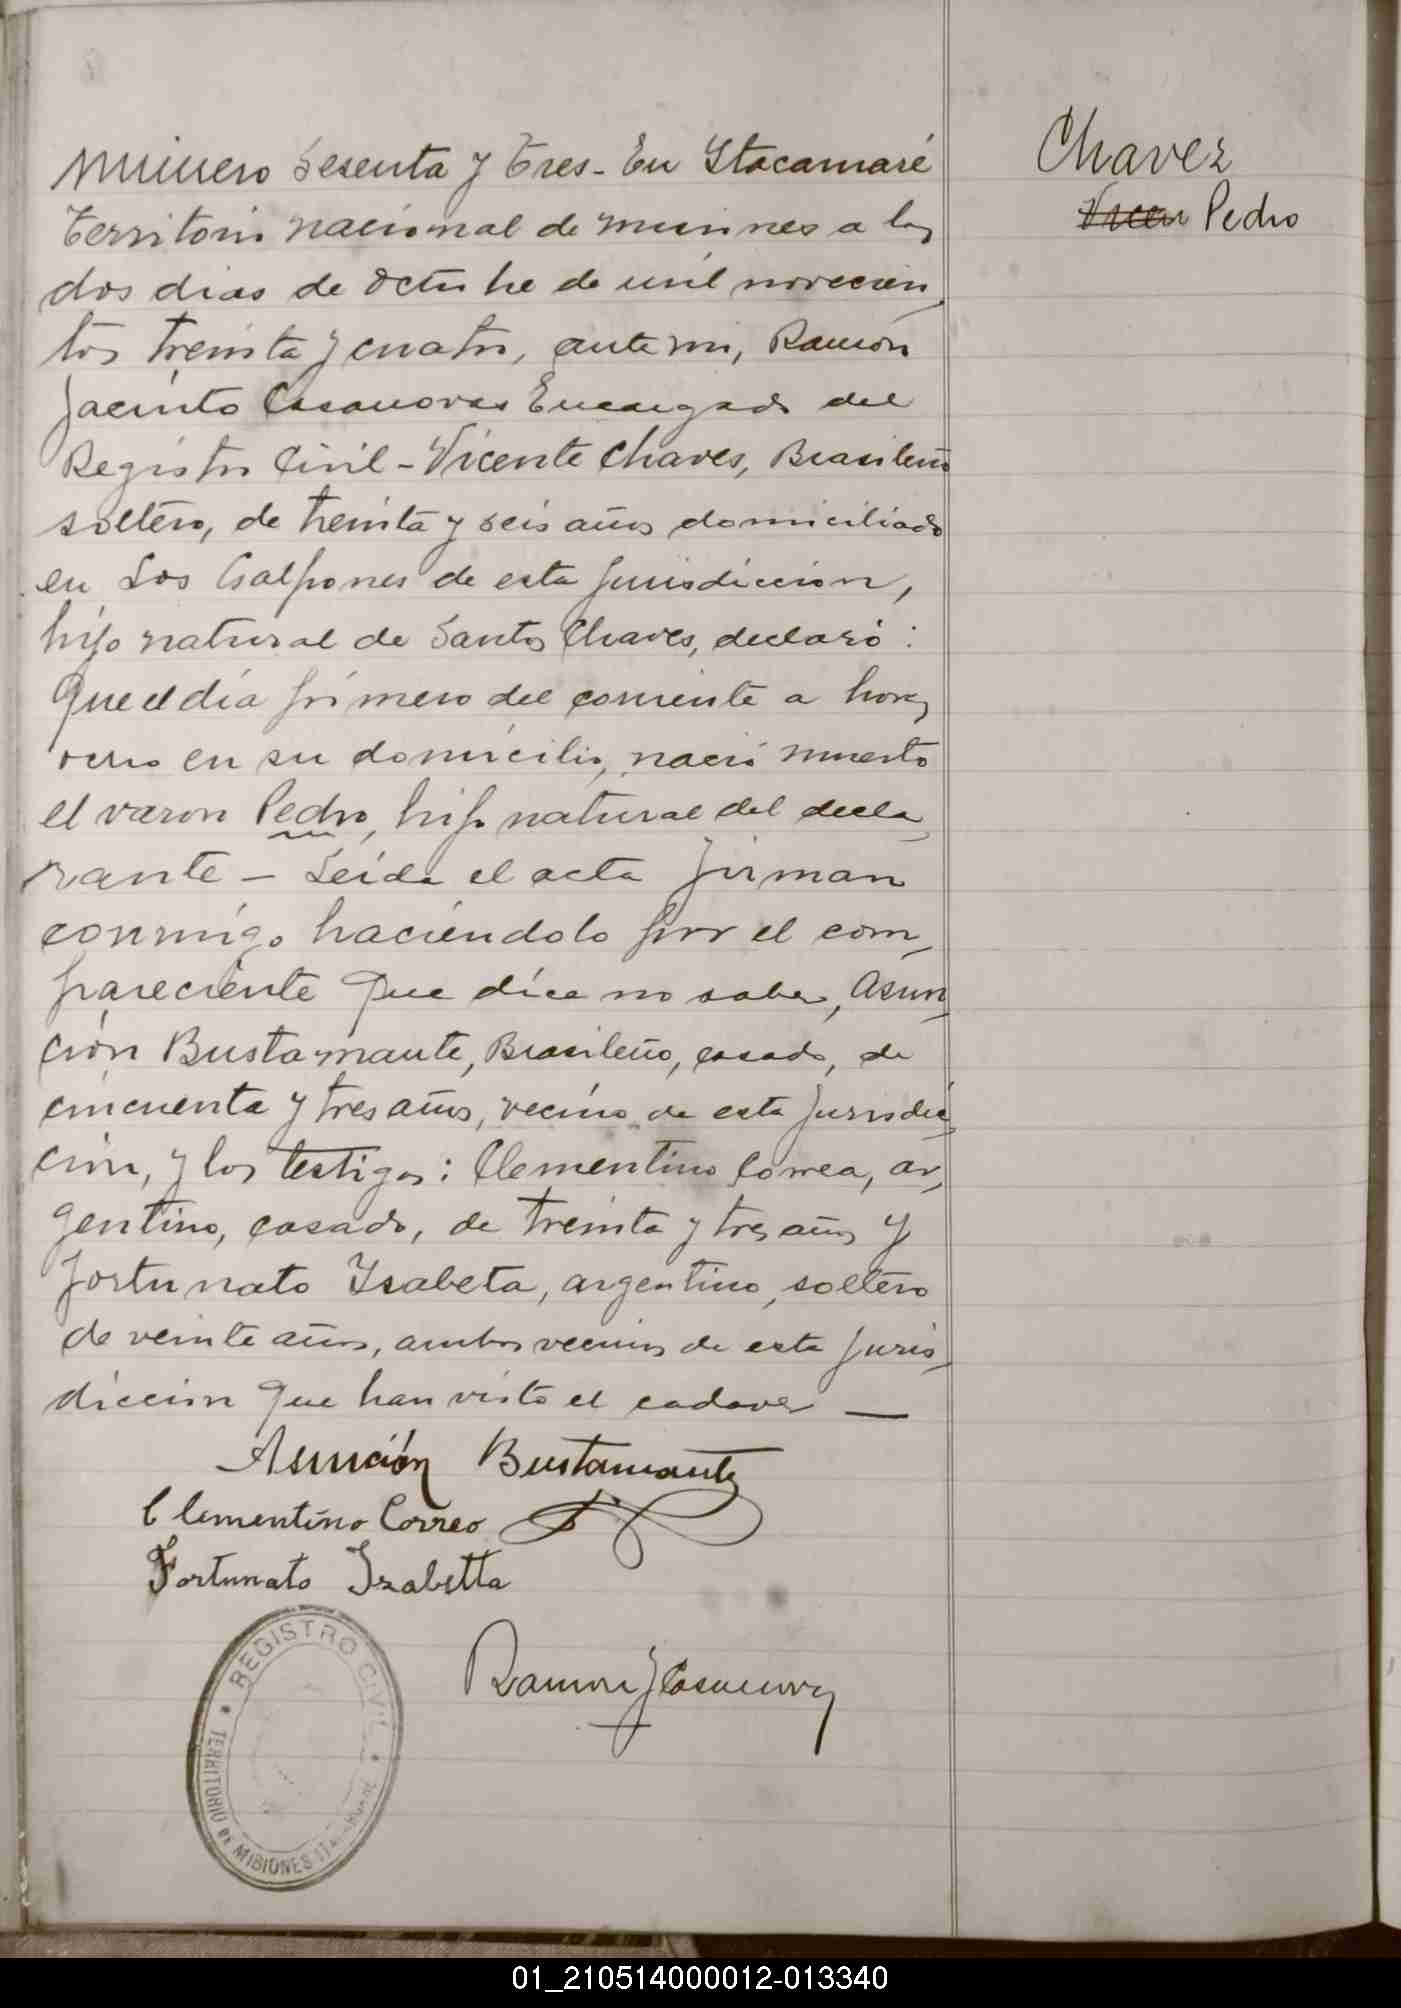 Numero Sesenta y Tres - En Itacamaré
Territorio nacional de Misiones a los
dos dias de Octubre de mil novecien,
tos treinta y cuatro, ante mi, Ramón
Jacinto Casanovas Encargado del
Registro Civil - Vicente Chaves, Brasileño
soltero, de treinta y seis años domiciliado
en Los Galpones de esta jurisdiccion,
hijo natural de Santos Chaves, declaró:
Que el día primero del corriente a horas
ocho en su domicilio, nació muerto
el varon Pedro, hijo natural del decla,
rante - Leida el acta firman
conmigo haciéndolo por el com,
pareciente que dice no saber, Asun,
ción Bustamante, Brasileño, casado, de
cincuenta y tres años, vecino de esta jurisdic,
cion, y los testigos: Clementino Correa, ar,
gentino, casado, de treinta y tres años y
Fortunato Isabeta, argentino, soltero
de veinte años, ambos vecinos de esta juris,
diccion que han visto el cadaver —
Asunción Bustamante
Clementino Correo
Fortunato Izabetta
Ramon J Casanovas
REGISTRO CIVIL
TERRITORIO DE MISIONES
Chavez
Pedro
01_210514000012-013340